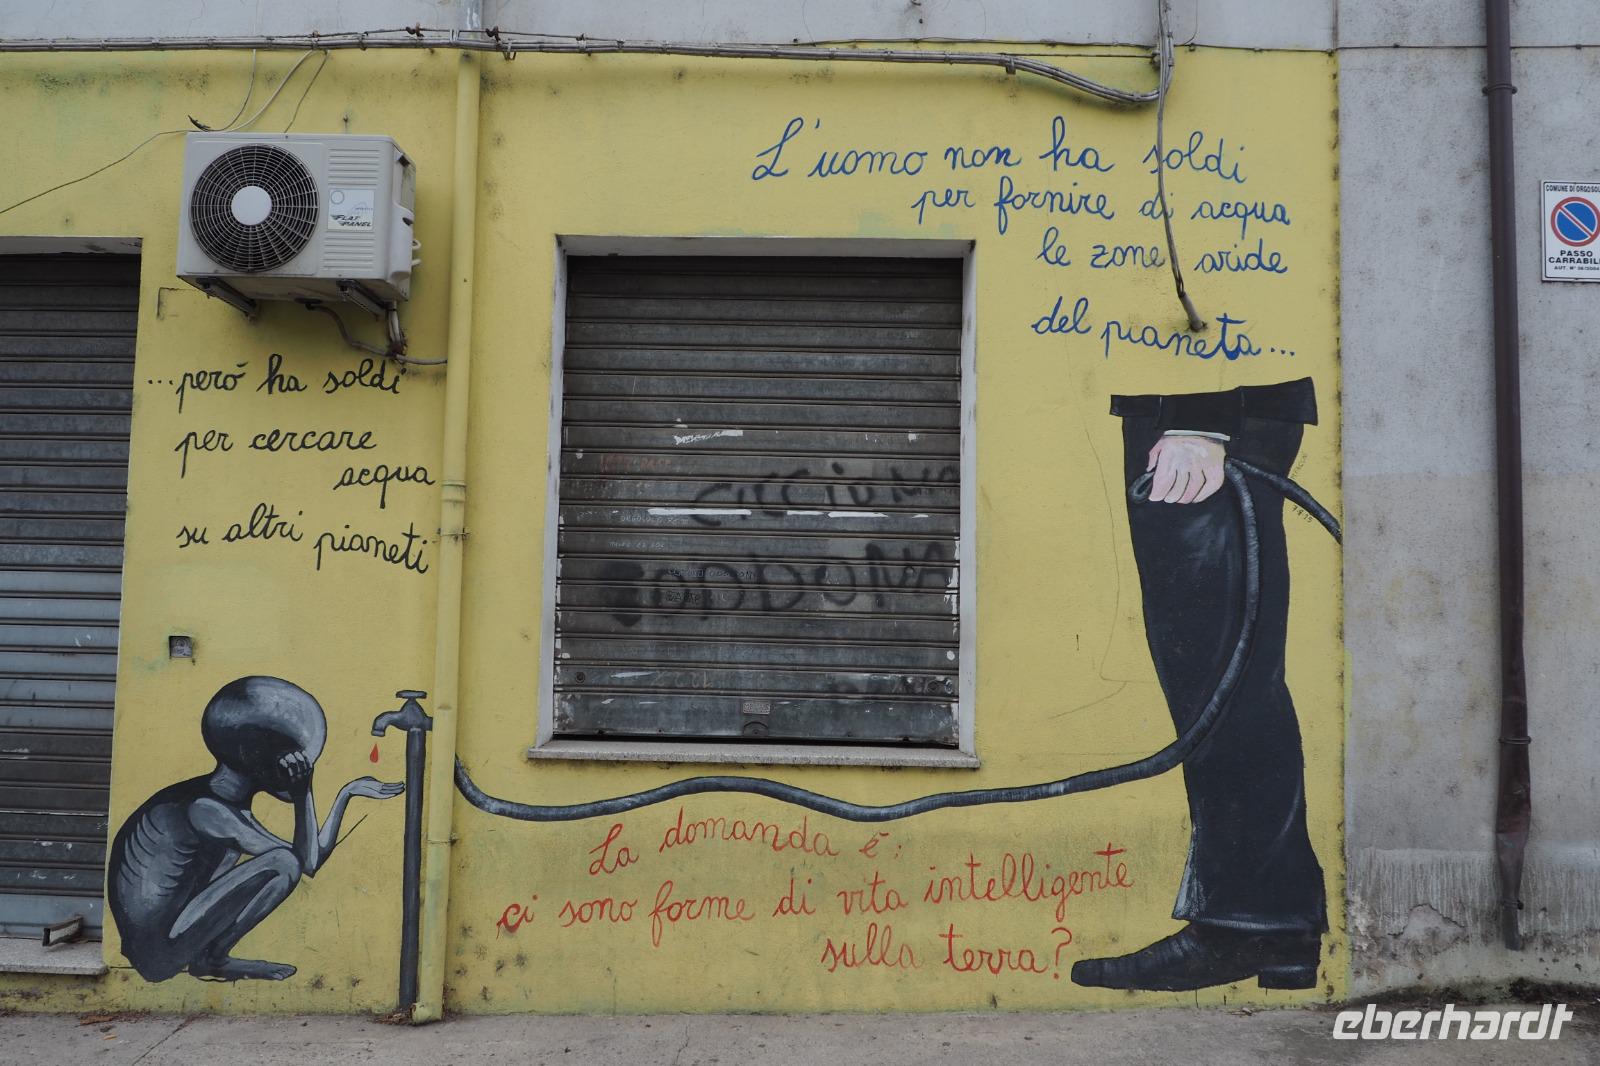 L'uomo non ha soldi
per fornire di acqua
le zone aride
del pianeta...
...però ha soldi
per cercare
acqua
su altri pianeti
La domanda è:
ci sono forme di vita intelligente
sulla terra?
FLAT
PANEL
PASSO
CARRABILE
eberhardt